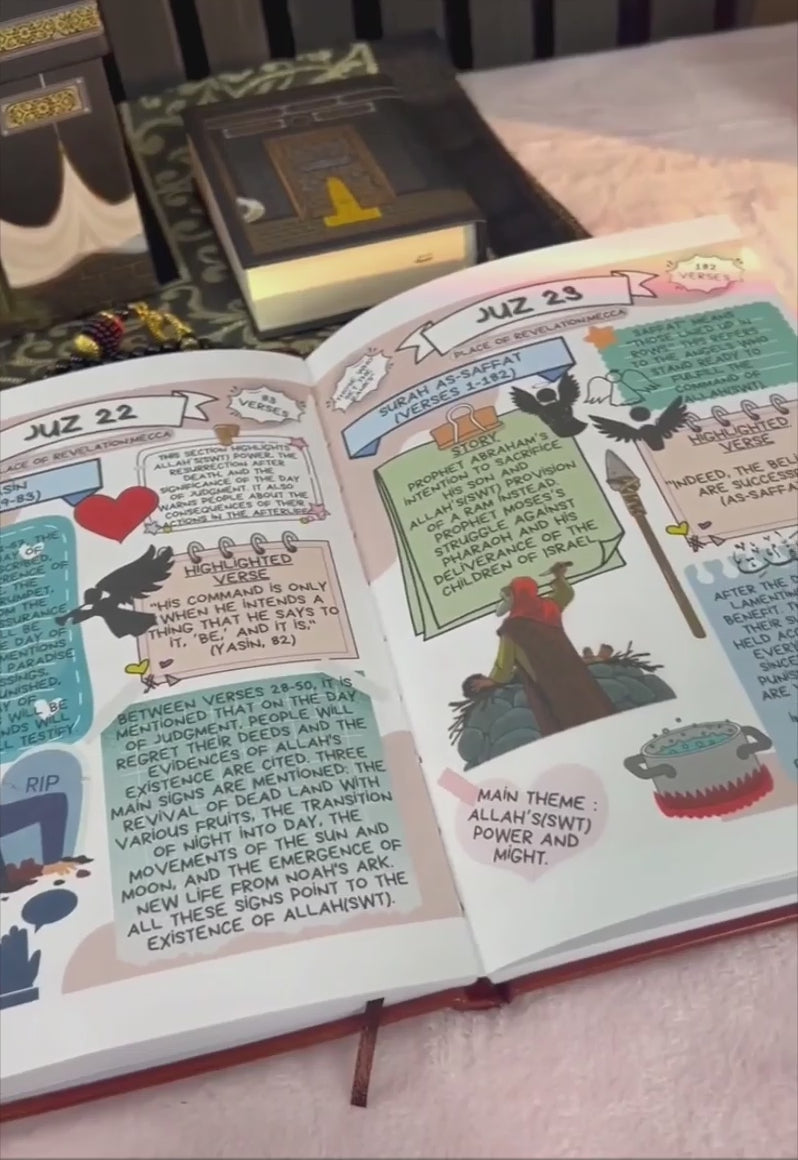 JUZ 22
83
VERSES
PLACE OF REVELATION:MECCA
9-83)
THIS SECTION HIGHLIGHTS
ALLAH'S(SWT) POWER, THE
RESURRECTION AFTER
DEATH, AND THE
SIGNIFICANCE OF THE DAY
OF JUDGMENT. IT ALSO
WARNS PEOPLE ABOUT THE
CONSEQUENCES OF THEIR
ACTIONS IN THE AFTERLIFE
THE
OF
THE
DAY OF
PARADISE
BE
WILL
TESTIFY
HIGHLIGHTED
VERSE
"HIS COMMAND IS ONLY
WHEN HE INTENDS A
THING THAT HE SAYS TO
IT, 'BE,' AND IT IS."
(YASIN, 82)
BETWEEN VERSES 28-50, IT IS
MENTIONED THAT ON THE DAY
OF JUDGMENT, PEOPLE WILL
REGRET THEIR DEEDS AND THE
EVIDENCES OF ALLAH'S
EXISTENCE ARE CITED. THREE
MAIN SIGNS ARE MENTIONED: THE
REVIVAL OF DEAD LAND WITH
VARIOUS FRUITS, THE TRANSITION
OF NIGHT INTO DAY, THE
MOVEMENTS OF THE SUN AND
MOON, AND THE EMERGENCE OF
NEW LIFE FROM NOAH'S ARK.
ALL THESE SIGNS POINT TO THE
EXISTENCE OF ALLAH(SWT).
RIP
JUZ 23
182
VERSES
PLACE OF REVELATION:MECCA
SURAH AS-SAFFAT
(VERSES 1-182)
SAFFAT MEANS
THOSE LINED UP IN
ROWS. THIS REFERS
TO THE ANGELS WHO
STAND READY TO
FULFILL THE
COMMAND OF
ALLAH(SWT)
STORY
PROPHET ABRAHAM'S
INTENTION TO SACRIFICE
HIS SON AND
ALLAH'S(SWT) PROVISION
OF A RAM INSTEAD.
PROPHET MOSES'S
STRUGGLE AGAINST
PHARAOH AND HIS
DELIVERANCE OF THE
CHILDREN OF ISRAEL
HIGHLIGHTED
VERSE
"INDEED, THE
ARE
(AS-SAFFA
AFTER THE
BENEFIT.
THEIR
HELD
SINCE
ARE
MAIN THEME :
ALLAH'S(SWT)
POWER AND
MIGHT.